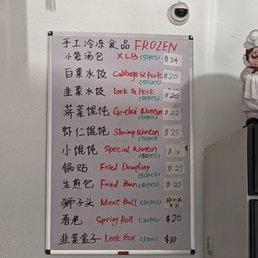 手工冷冻食品 FROZEN
小笼汤包 XLB (50PCS) $24
白菜水饺 Cabbage & Pork (50PCS) $20
韭菜水饺 Leek & Pork (50PCS) $20
荠菜馄饨 Wonton (50PCS) $22
虾仁馄饨 Shrimp Wonton (50PCS) $25
小馄饨 Special Wonton (50PCS) $18
锅贴 Fried Dumpling (50PCS) $25
生煎包 Fried Bun (40PCS) $25
狮子头 Meat Ball (20PCS)
香卷 Spring Roll (20PCS) $20
韭菜盒子 Leek Box (5PCS) $10